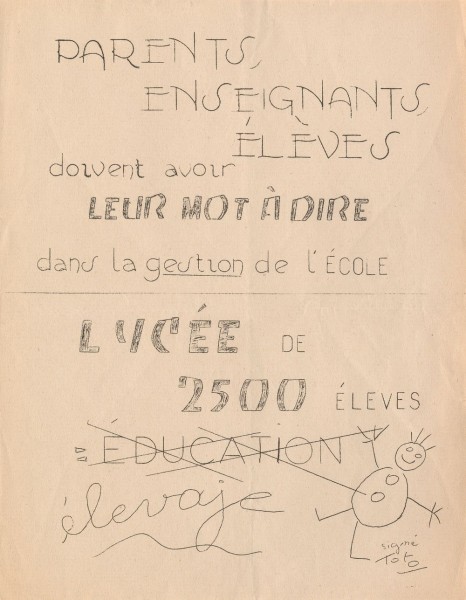 PARENTS,
ENSEIGNANTS,
ÉLÈVES
doivent avoir
LEUR MOT À DIRE
dans la gestion de l'ÉCOLE
LYCÉE DE
2500 ÉLEVES
= ÉDUCATION
élevaje
signé
Toto